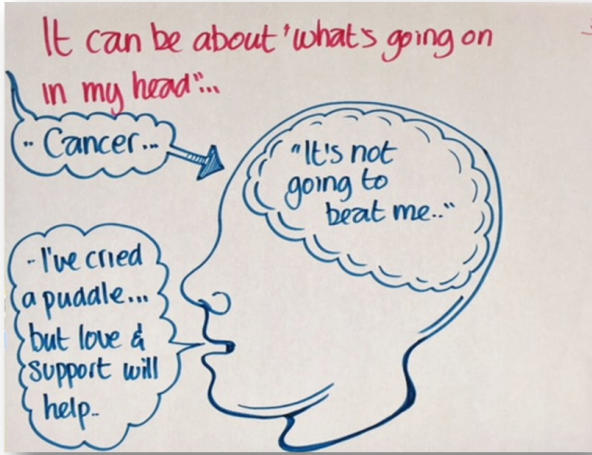 It can be about 'what's going on
in my head"...
.. Cancer...
"It's not
going to
beat me.."
- I've cried
a puddle...
but love &
support will
help..